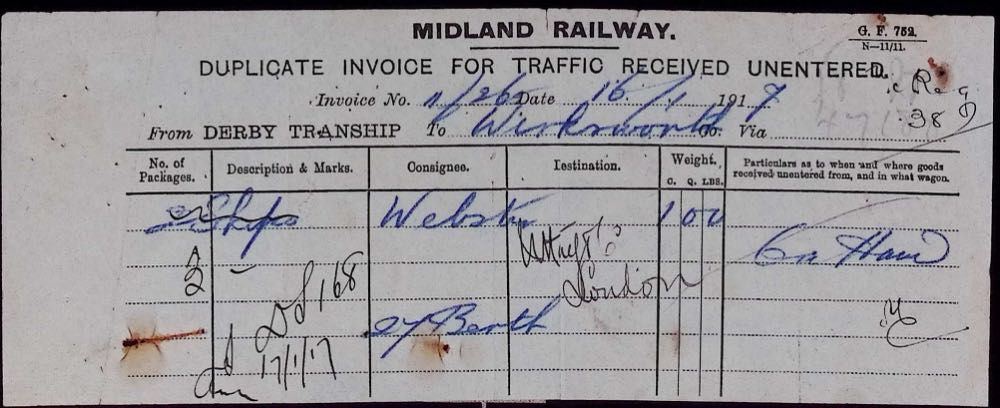 MIDLAND RAILWAY.
G. F. 752.
N—11/11.
DUPLICATE INVOICE FOR TRAFFIC RECEIVED UNENTERED.
Invoice No. 11/26 Date 16/1 1917
Reg
38
From DERBY TRANSHIP To Wirksworth Co. Via
No. of Packages. Description & Marks. Consignee. Destination. Weight. Particulars as to when and where goods received unentered from, and in what wagon.
C. Q. LBS.
2 Webster 1 0 0
On Hand
2
London
DS 168
Berth
17/1/17